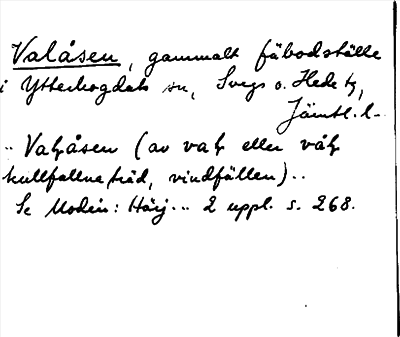 Valåsen, gammalt fäbodställe
i Ytterhogdals sn, Svegs o. Hede tg,
Jämtl. l.
.. Valhåsen (av valh eller vålh
kullfallna träd, vindfällen)..
Se Modin: Härj... 2 uppl. s. 268.